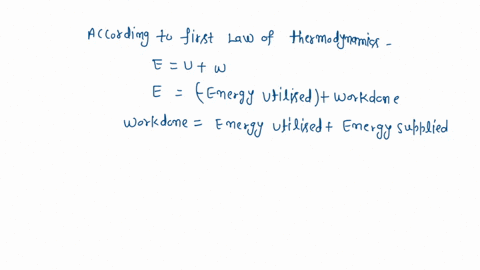 According to first Law of thermodynamics -
E = U + W
E = (-Energy utilised) + workdone
workdone = Energy utilised + Energy supplied